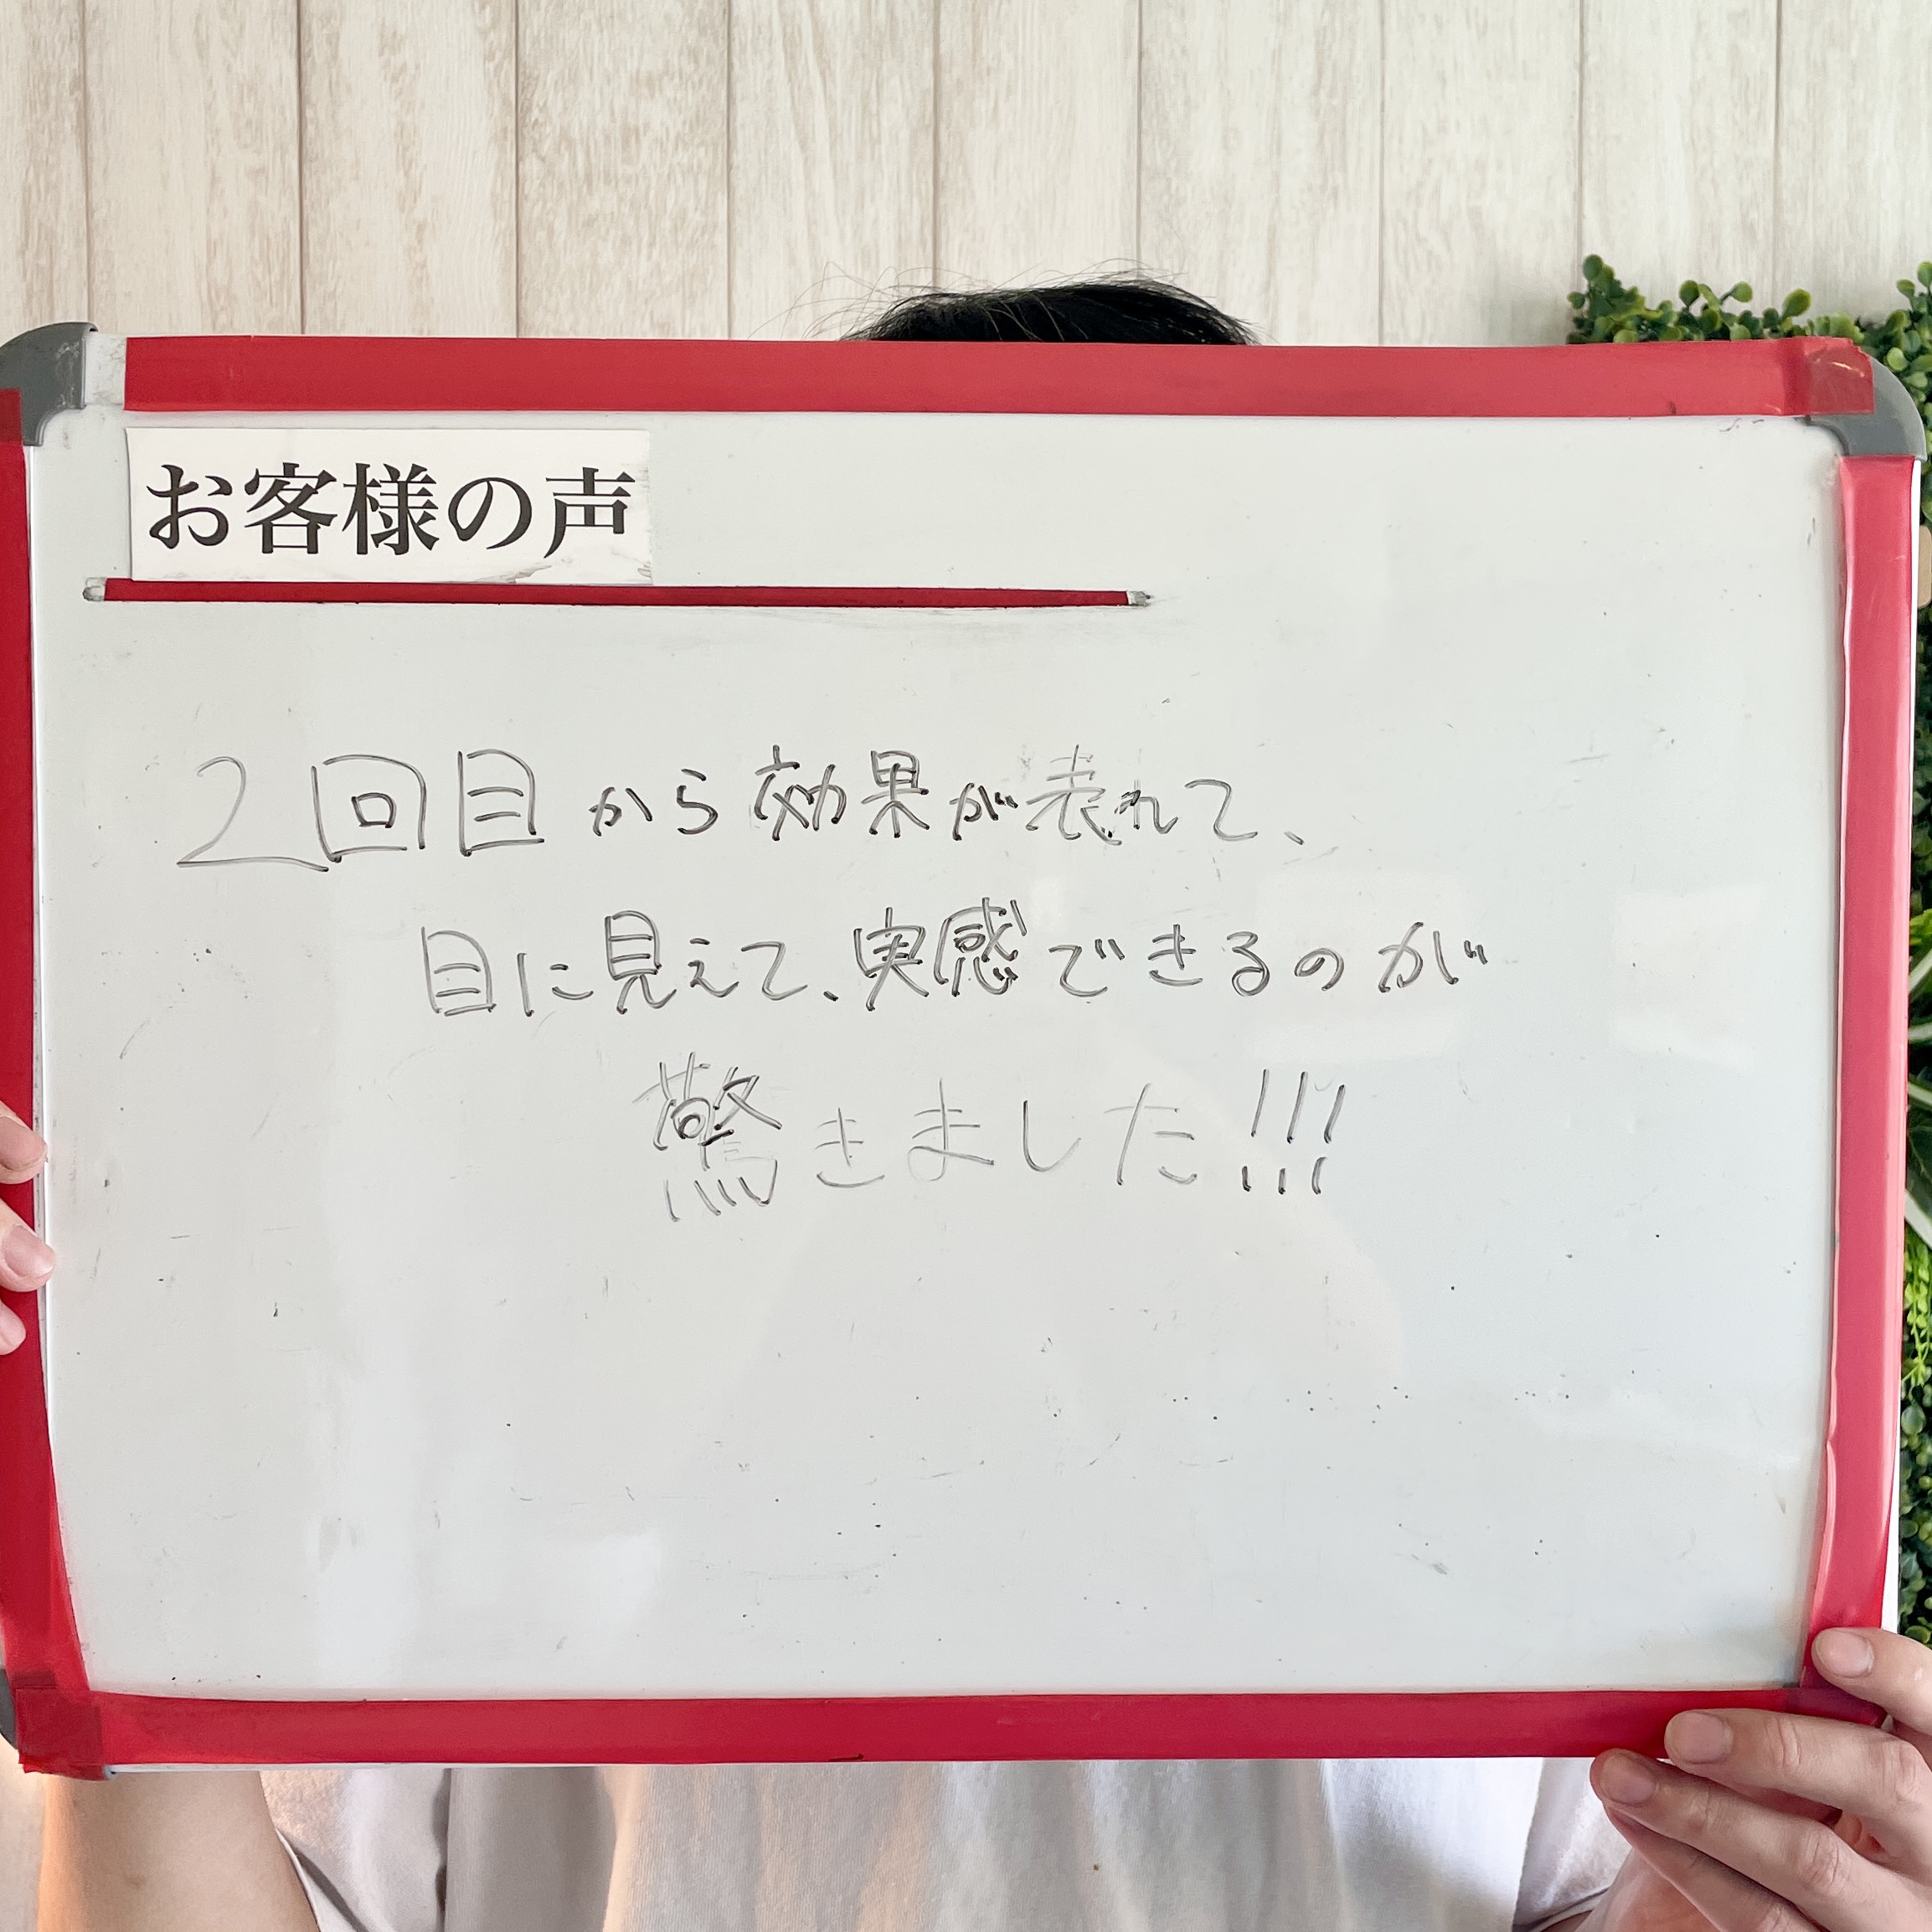 お客様の声
2回目から効果が表れて、
目に見えて、実感できるのが
驚きました!!!